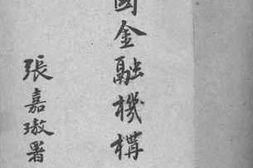 國金融機構
張嘉璈署